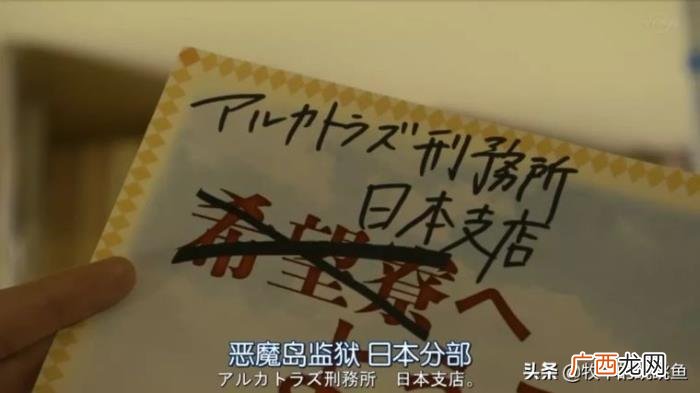 アルカトラズ刑務所
日本支店
希望寮へ
よ
恶魔岛监狱 日本分部
アルカトラズ刑務所 日本支店。
头条 @牧
广西龙网